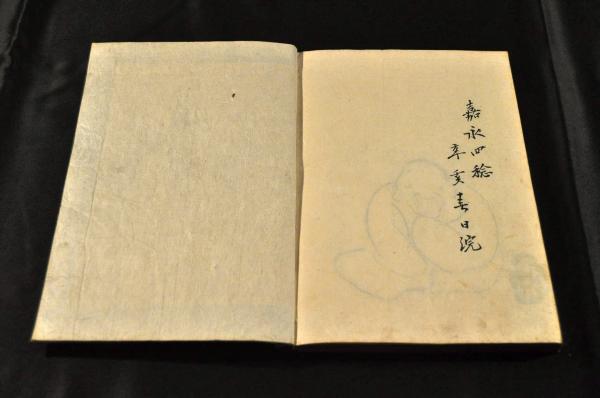 嘉永四稔
辛亥春日浣